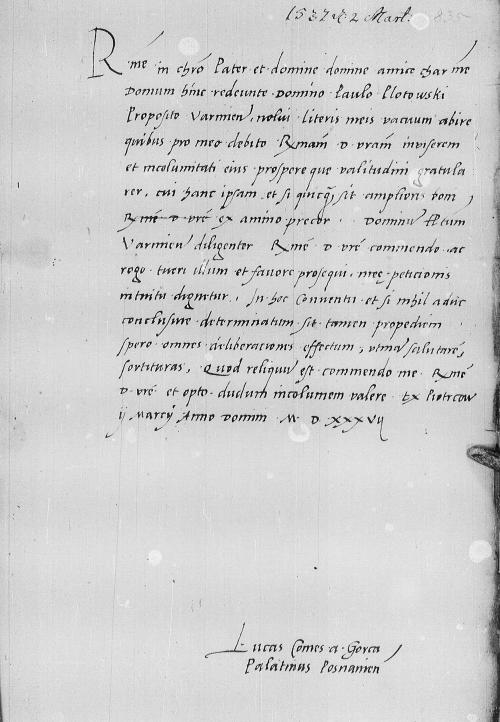 1537 d. 2 Mart.
Rme in chro Pater et domine domine amice char me
Domum hinc redeunte domino Paulo Plotowski
Preposito Varmien, nolui literis meis vacuum abire
quibus pro meo debito Rmam d vram inviserem
et incolumitati eius prospereque valitudini gratula
rer, cui hanc ipsam et si quicq sit amplioris boni
Rme d vre ex animo precor. Dominu ptum
Varmien diligenter Rme d vre commendo ac
rogo tueri illum et favore prosequi, mee peticionis
intuitu dignetur. In hoc Conventu et si nihil aduc
conclusive determinatum sit tamen propediem
spero omnes deliberaciones effectum, utina salutare,
sortituras, Quod reliquu est commendo me Rme
d vre et opto dudum incolumem valere Ex Piotrcow
ij Marcij Anno Domini M D XXXVij
Lucas Comes a Gorca
Palatinus Posnanien